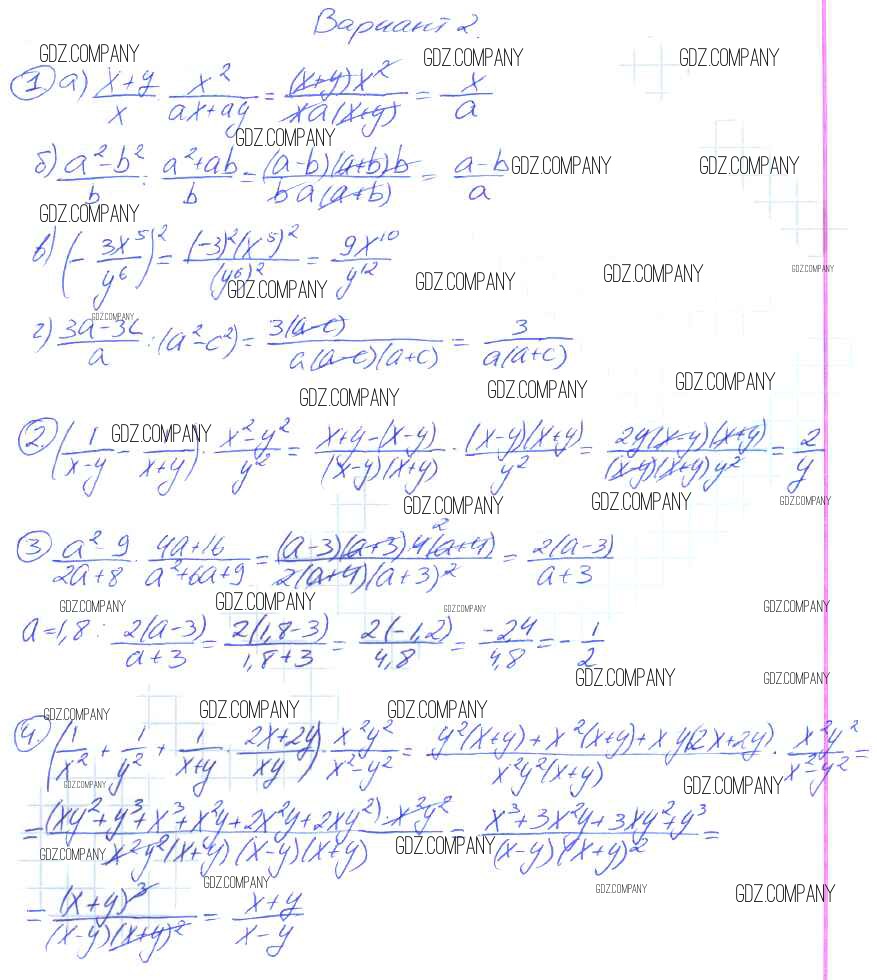 Вариант 2.
GDZ.COMPANY GDZ.COMPANY GDZ.COMPANY
① а) (x+y)/x · x²/(ax+ay) = (x+y)x²/(xa(x+y)) = x/a
GDZ.COMPANY
б) (a²-b²)/b : (a²+ab)/b = (a-b)(a+b)b/(ba(a+b)) = (a-b)/a GDZ.COMPANY GDZ.COMPANY
GDZ.COMPANY
в) (-3x⁵/y⁶)² = (-3)²(x⁵)²/(y⁶)² = 9x¹⁰/y¹²
GDZ.COMPANY GDZ.COMPANY GDZ.COMPANY GDZ.COMPANY
GDZ.COMPANY
г) (3a-3c)/a : (a²-c²) = 3(a-c)/(a(a-c)(a+c)) = 3/(a(a+c))
GDZ.COMPANY GDZ.COMPANY GDZ.COMPANY
② (1/(x-y) - 1/(x+y)) · (x²-y²)/y² = (x+y-(x-y))/((x-y)(x+y)) · (x-y)(x+y)/y² = 2y(x-y)(x+y)/((x-y)(x+y)y²) = 2/y
GDZ.COMPANY
GDZ.COMPANY GDZ.COMPANY GDZ.COMPANY
③ (a²-9)/(2a+8) · (4a+16)/(a²+6a+9) = (a-3)(a+3)4(a+4)/(2(a+4)(a+3)²) = 2(a-3)/(a+3)
2
GDZ.COMPANY GDZ.COMPANY GDZ.COMPANY GDZ.COMPANY
a=1,8: 2(a-3)/(a+3) = 2(1,8-3)/(1,8+3) = 2(-1,2)/4,8 = -2,4/4,8 = -1/2
GDZ.COMPANY GDZ.COMPANY
GDZ.COMPANY GDZ.COMPANY GDZ.COMPANY
④ (1/x² + 1/y² + 1/(x+y) · (2x+2y)/(xy)) · x²y²/(x²-y²) = (y²(x+y)+x²(x+y)+xy(2x+2y))/(x²y²(x+y)) · x²y²/(x²-y²) =
GDZ.COMPANY GDZ.COMPANY
= (xy²+y³+x³+x²y+2x²y+2xy²)·x²y²/(x²y²(x+y)(x-y)(x+y)) = (x³+3x²y+3xy²+y³)/((x-y)(x+y)²) =
GDZ.COMPANY GDZ.COMPANY
GDZ.COMPANY GDZ.COMPANY GDZ.COMPANY
= (x+y)³/((x-y)(x+y)²) = (x+y)/(x-y)